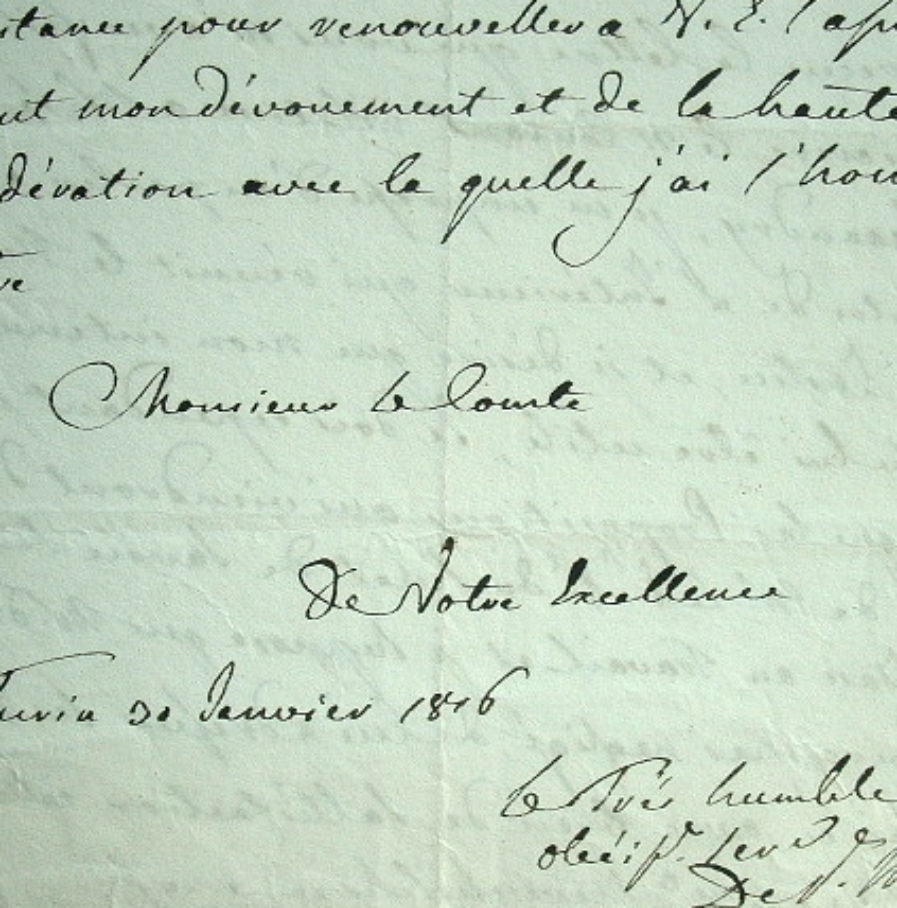 stance pour renouveller a V. E. l'ap
nt mon dévouement et de la haute
dération avec la quelle j'ai l'hon
re
Monsieur le Comte
De Votre Excellence
Turin 30 Janvier 1816
le Très humble
obéis.t Serv.r
De